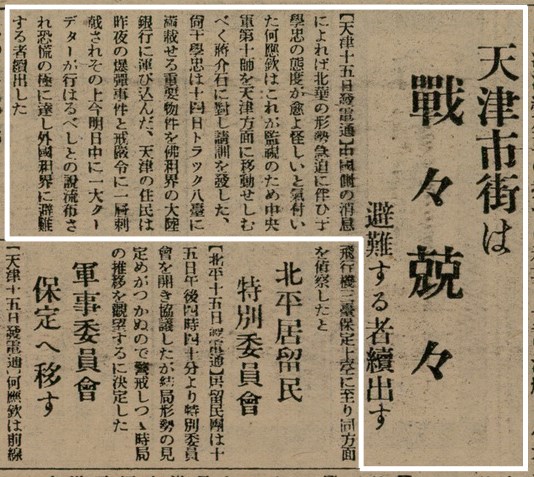 天津市街は
戰々兢々
避難する者續出す
【天津十五日發電通】中國側の消息
によれば北華の形勢急迫に伴ひ于
學忠の態度が愈よ怪しいと氣付い
た何應欽はこれが監視のため中央
軍第十師を天津方面に移動せしむ
べく蔣介石に對し請訓を發した、
尙于學忠は十四日トラック八臺に
滿載せる重要物件を佛租界の大陸
銀行に運び込んだ、天津の住民は
昨夜の爆彈事件と戒嚴令に一層刺
戟されその上今明日中に一大クー
デターが行はるべしとの說流布さ
れ恐慌の極に達し外國租界に避難
する者續出した
飛行機三臺保定上空に至り同方面
を偵察したと
北平居留民
特別委員會
【北平十五日發電通】居留民團は十
五日午後四時四十分より特別委員
會を開き協議したが結局形勢の見
定めがつかぬので警戒しつゝ時局
の推移を觀望するに決定した
軍事委員會
保定へ移す
【天津十五日發電通】何應欽は前線